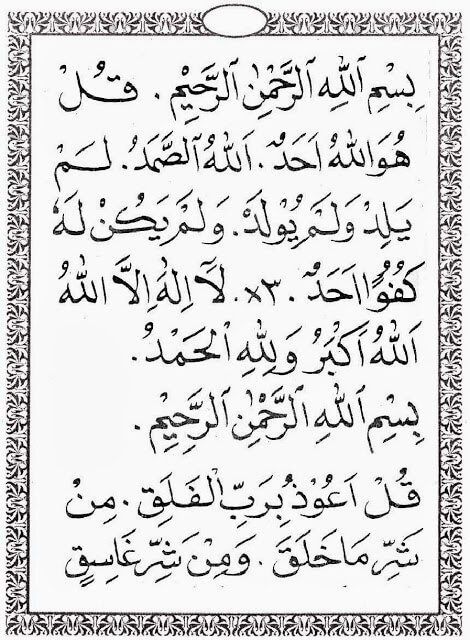 بِسْمِ اللهِ الرَّحْمٰنِ الرَّحِيْمِ. قُلْ
هُوَ اللهُ اَحَدٌ. اَللهُ الصَّمَدُ. لَمْ
يَلِدْ وَلَمْ يُوْلَدْ. وَلَمْ يَكُنْ لَهُ
كُفُوًا اَحَدٌ. ٣×. لَآ اِلٰهَ اِلَّا اللهُ
اَللهُ اَكْبَرُ وَلِلّٰهِ الْحَمْدُ.
بِسْمِ اللهِ الرَّحْمٰنِ الرَّحِيْمِ.
قُلْ اَعُوْذُ بِرَبِّ الْفَلَقِ. مِنْ
شَرِّ مَا خَلَقَ. وَمِنْ شَرِّ غَاسِقٍ